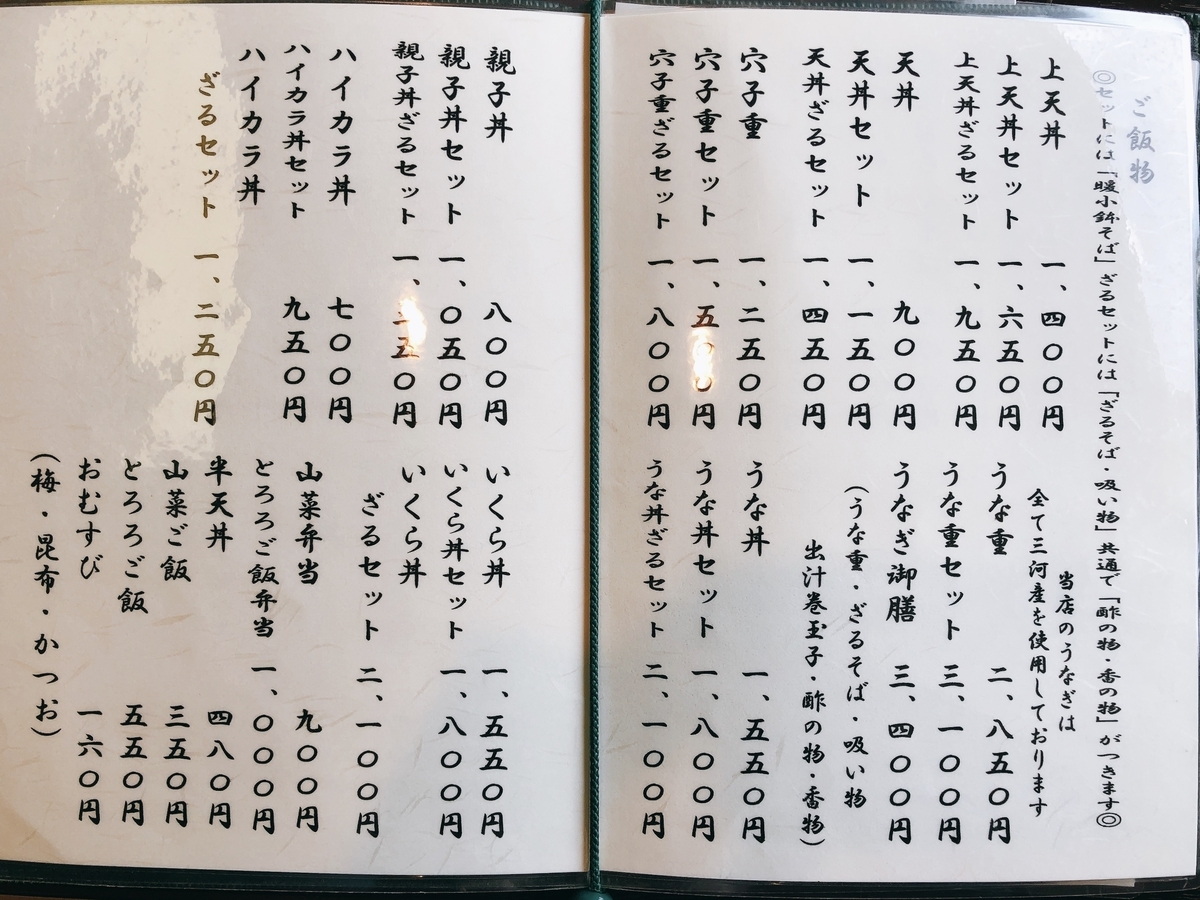 ご飯物
◎セットには「暖小鉢そば」ざるセットには「ざるそば・吸い物」共通で「酢の物・香の物」がつきます◎
上天丼　一、四〇〇円
上天丼セット　一、六五〇円
上天丼ざるセット　一、九五〇円
天丼　九〇〇円
天丼セット　一、一五〇円
天丼ざるセット　一、四五〇円
穴子重　一、二五〇円
穴子重セット　一、五〇〇円
穴子重ざるセット　一、八〇〇円
当店のうなぎは
全て三河産を使用しております
うな重　二、八五〇円
うな重セット　三、一〇〇円
うなぎ御膳　三、四〇〇円
（うな重・ざるそば・吸い物
出汁巻玉子・酢の物・香物）
うな丼　一、五五〇円
うな丼セット　一、八〇〇円
うな丼ざるセット　二、一〇〇円
親子丼　八〇〇円
親子丼セット　一、〇五〇円
親子丼ざるセット
ハイカラ丼　七〇〇円
ハイカラ丼セット　九五〇円
ハイカラ丼
ざるセット　一、二五〇円
いくら丼　一、五五〇円
いくら丼セット　一、八〇〇円
いくら丼
ざるセット　二、一〇〇円
山菜弁当　九〇〇円
とろろご飯弁当　一、〇〇〇円
半天丼　四八〇円
山菜ご飯　三五〇円
とろろご飯　五五〇円
おむすび　一六〇円
（梅・昆布・かつお）